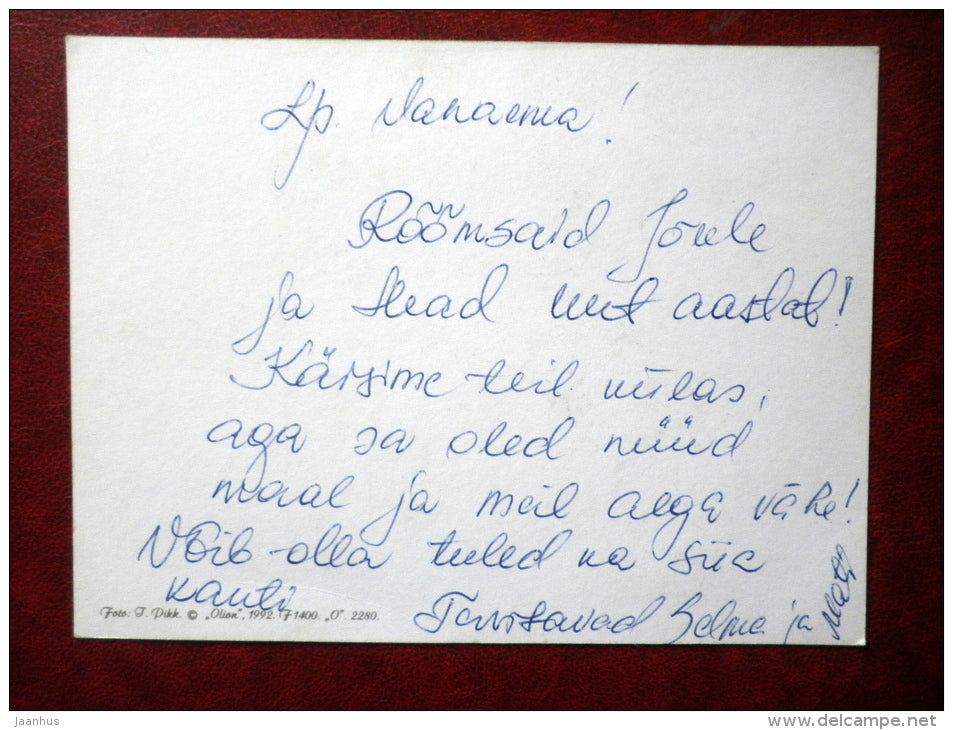 Lp. Vanaema!
Rõõmsaid Jõule
ja Head uut aastat!
Käisime teil külas,
aga sa oled nüüd
maal ja meil aega vähe!
Võib-olla tuled ka siia
kanti
Tervitavad Selma ja
Foto: T. Pikk. © „Olion”, 1992. F1400. „O”. 2280.
Jaanhus
www.delcampe.net